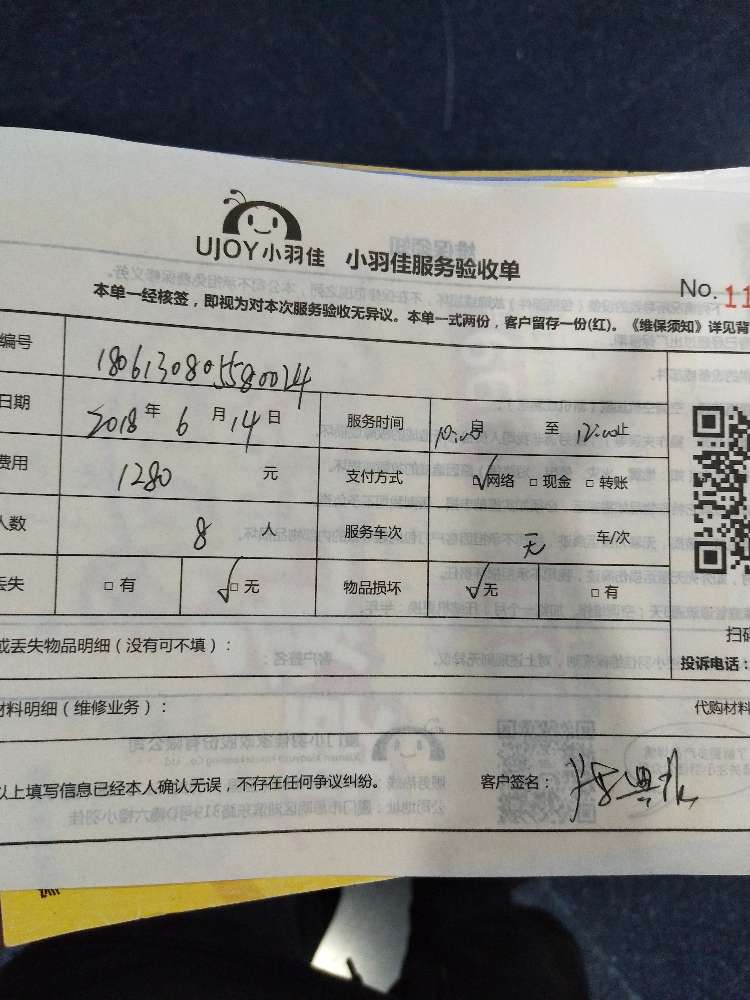 UJOY小羽佳 小羽佳服务验收单
No. 11
本单一经核签，即视为对本次服务验收无异议。本单一式两份，客户留存一份(红)。《维保须知》详见背
编号 1806130805580024
日期 2018年6月14日 服务时间 10:00自 至 12:00止
费用 1280 元 支付方式 √网络 □现金 □转账
人数 8 人 服务车次 无 车/次
丢失 □有 √□无 物品损坏 √无 □有
或丢失物品明细（没有可不填）：
扫码
投诉电话：
材料明细（维修业务）： 代购材料
以上填写信息已经本人确认无误，不存在任何争议纠纷。 客户签名：